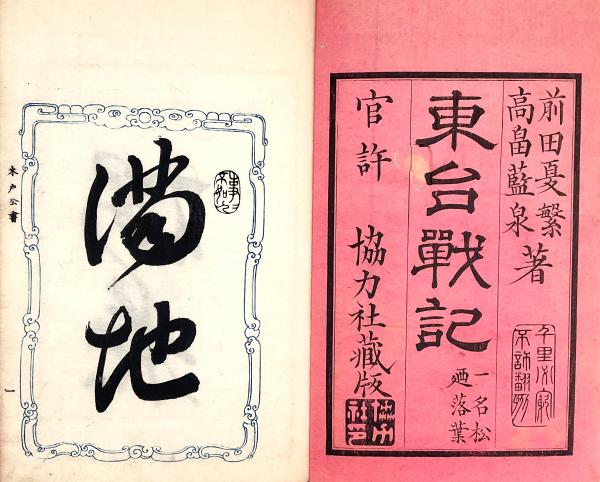 前田夏繁
高畠藍泉
著
東台戰記
一名松
廼落葉
官許
協力社蔵版
千里必究
不許翻刻
満地